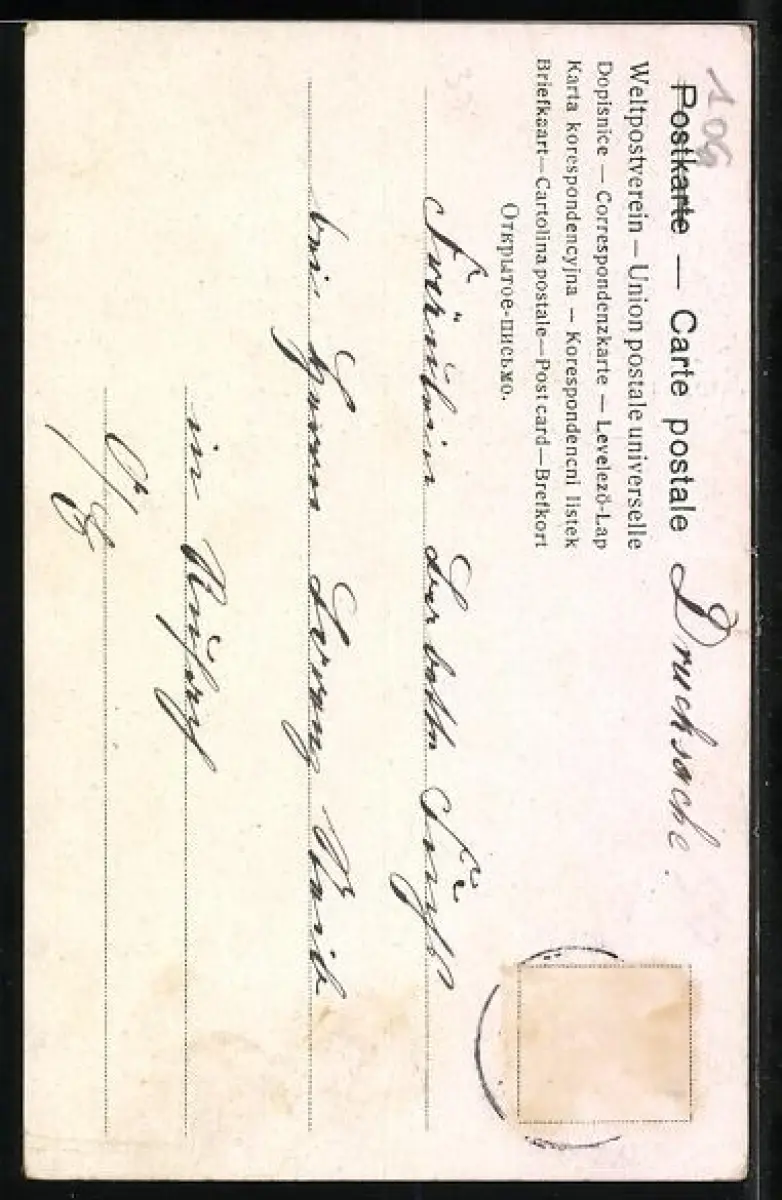 109
Postkarte — Carte postale Drucksache.
Weltpostverein — Union postale universelle
Dopisnice — Correspondenzkarte — Levelező-Lap
Karta korespondencyjna — Korespondencni listek
Briefkaart—Cartolina postale—Post card—Brefkort
Открытое-письмо.
Fräulein
bei Herrn Georg
in